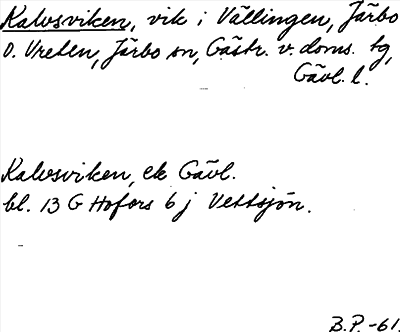 Kalvsviken, vik i Vällingen, Järbo
O. Vreten, Järbo sn, Gästr. v. doms. tg,
Gävl. l.
Kalvsviken, ek Gävl.
bl. 13 G Hofors 6 j Vettsjön.
B.P. -61.